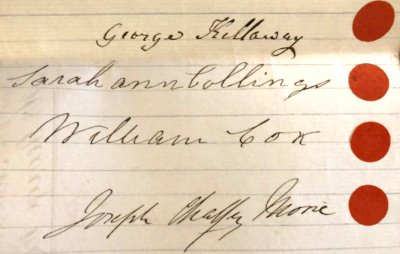 George Kellaway
Sarah ann Collings
William Cox
Joseph Chaffey Moore